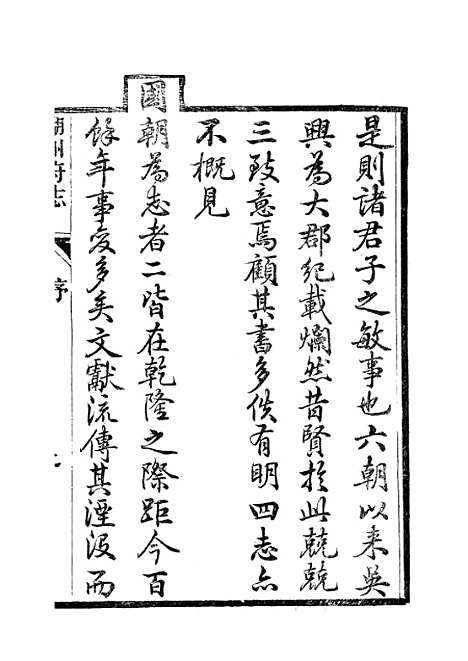 是則諸君子之敏事也六朝以来吳
興為大郡紀載爛然昔賢於此兢兢
三致意焉顧其書多佚有明四志亦
不概見
國朝為志者二皆在乾隆之際距今百
餘年事變多矣文獻流傳其湮没而
湖州府志
序